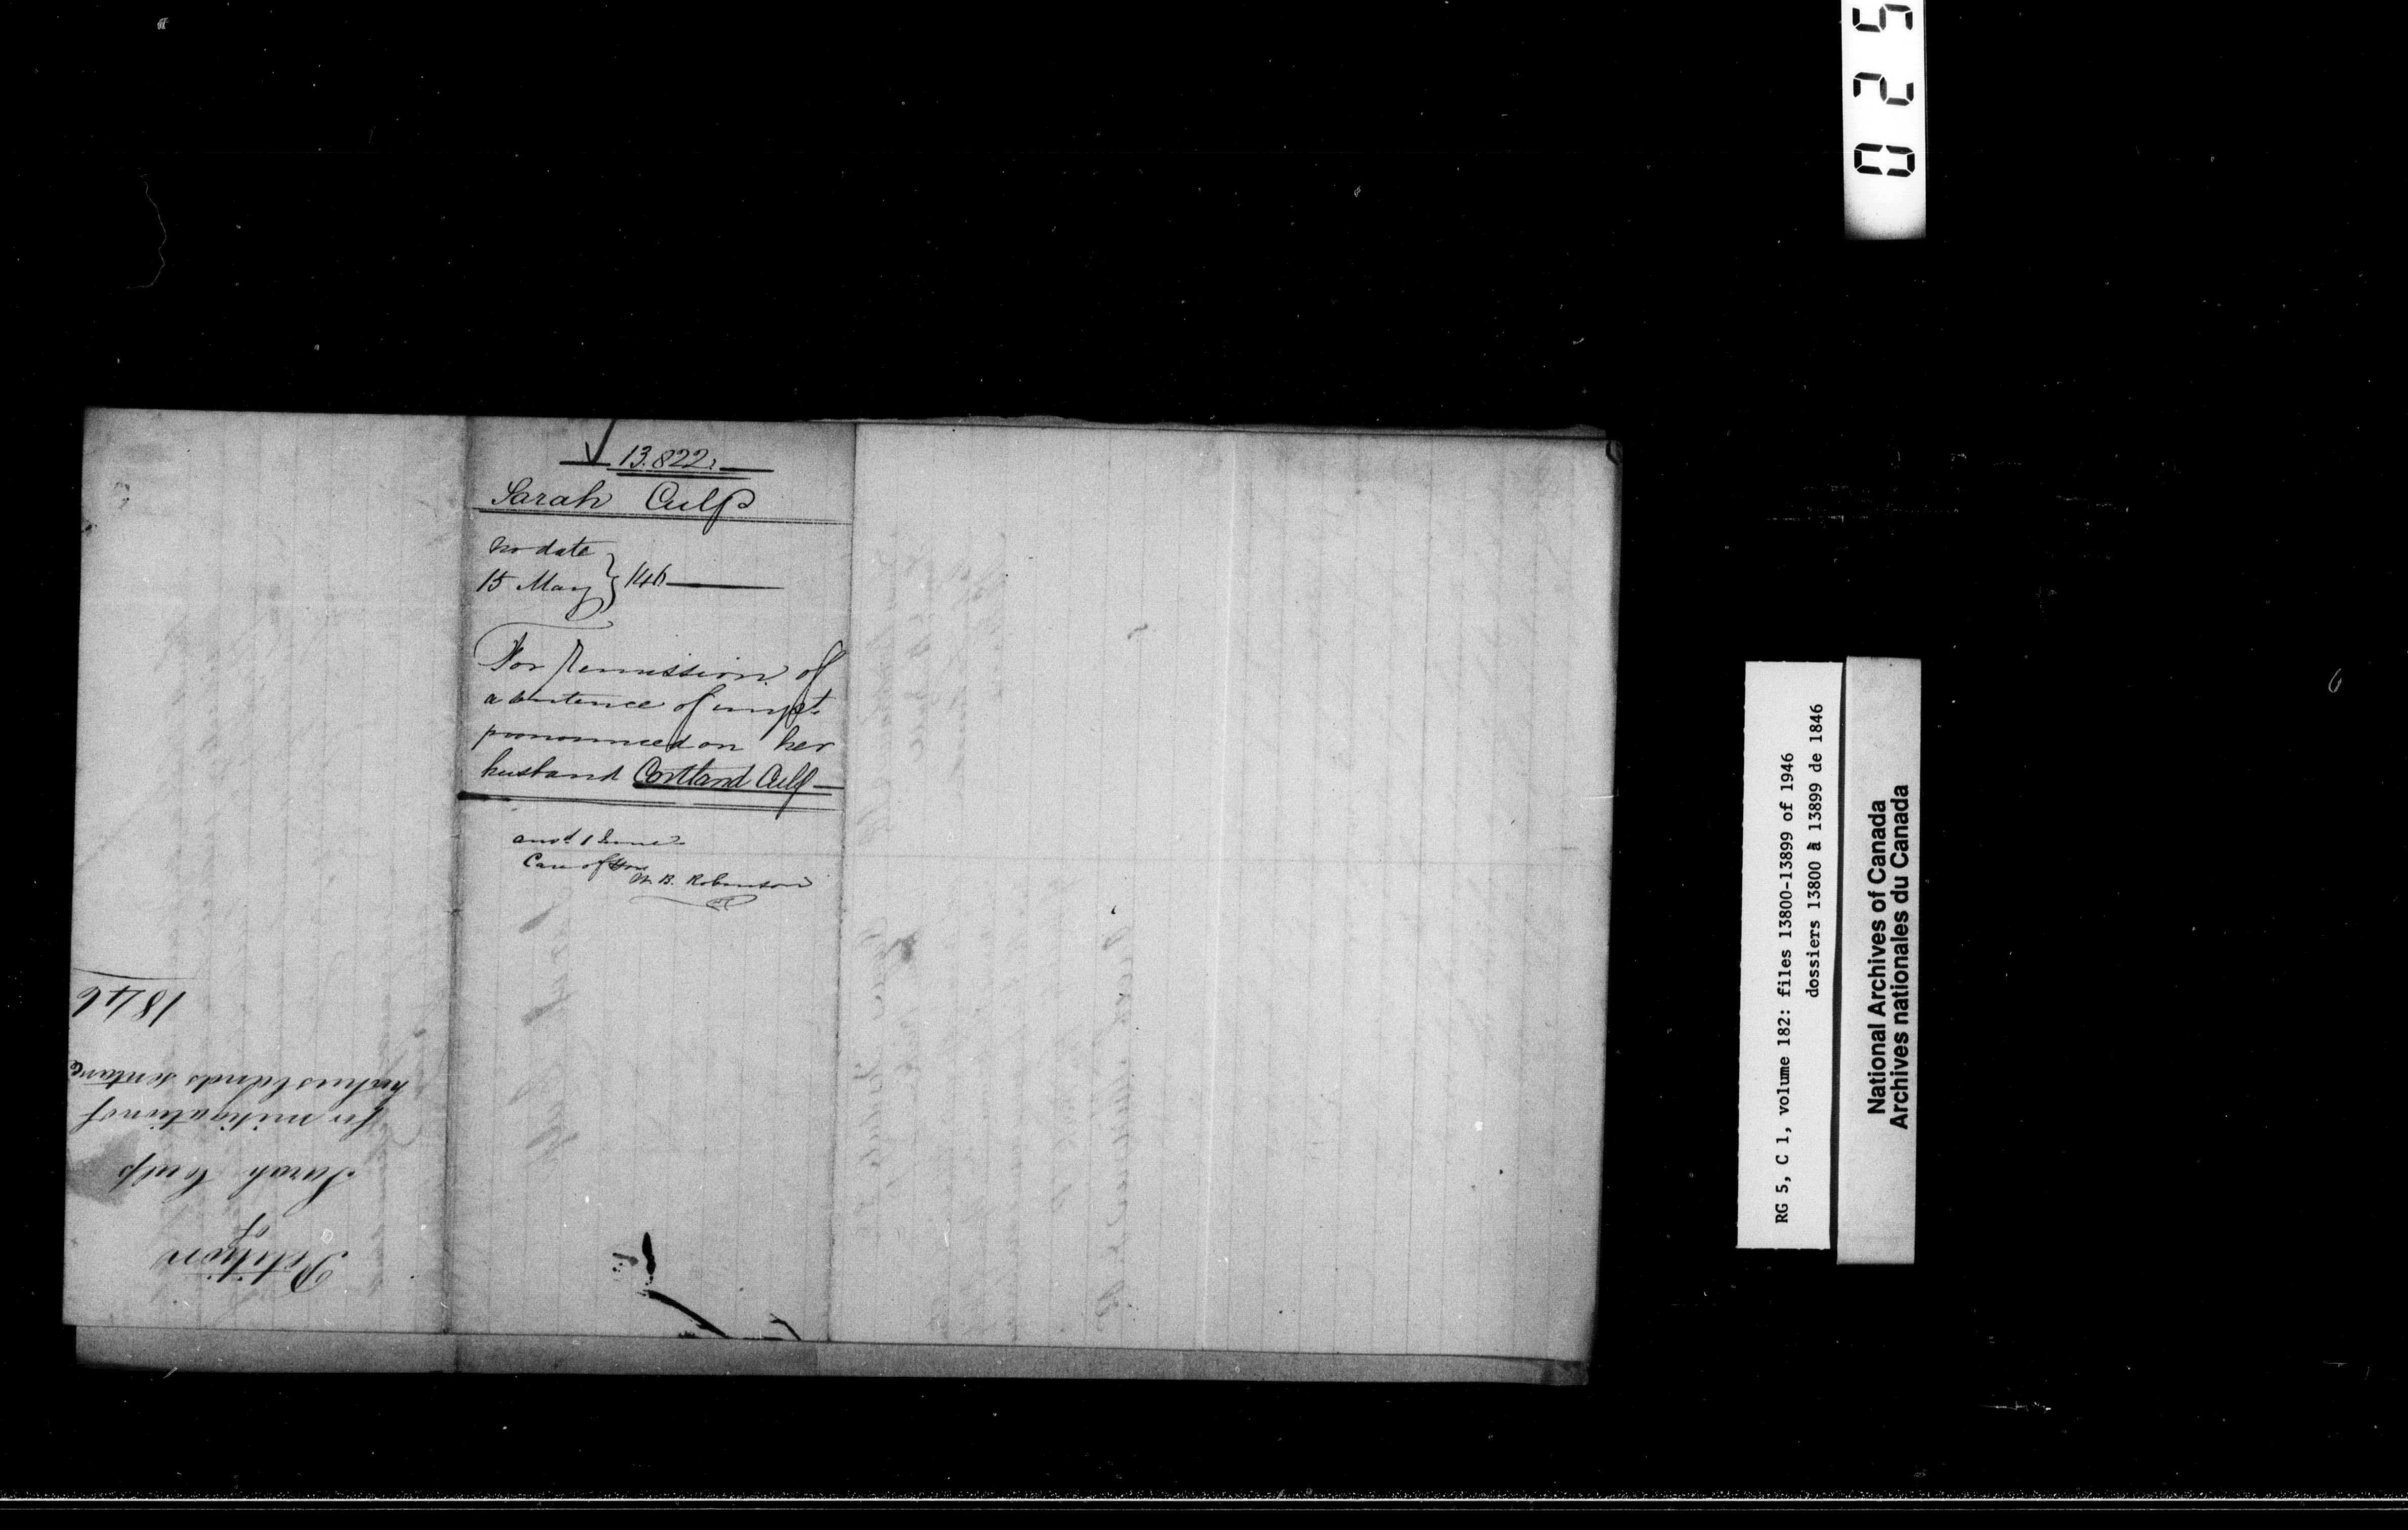 13.822.
Sarah Culp
No date
15 May } 1846
For Remission of
a sentence of impt.
pronounced on her
husband Cortland Culp
ansd. 1 June
Care of Hon
W. B. Robinson
Petition
of
Sarah Culp
for mitigation of
husbands sentance
1846
025
RG 5, C 1, volume 182: files 13800-13899 of 1946
dossiers 13800 à 13899 de 1846
National Archives of Canada
Archives nationales du Canada